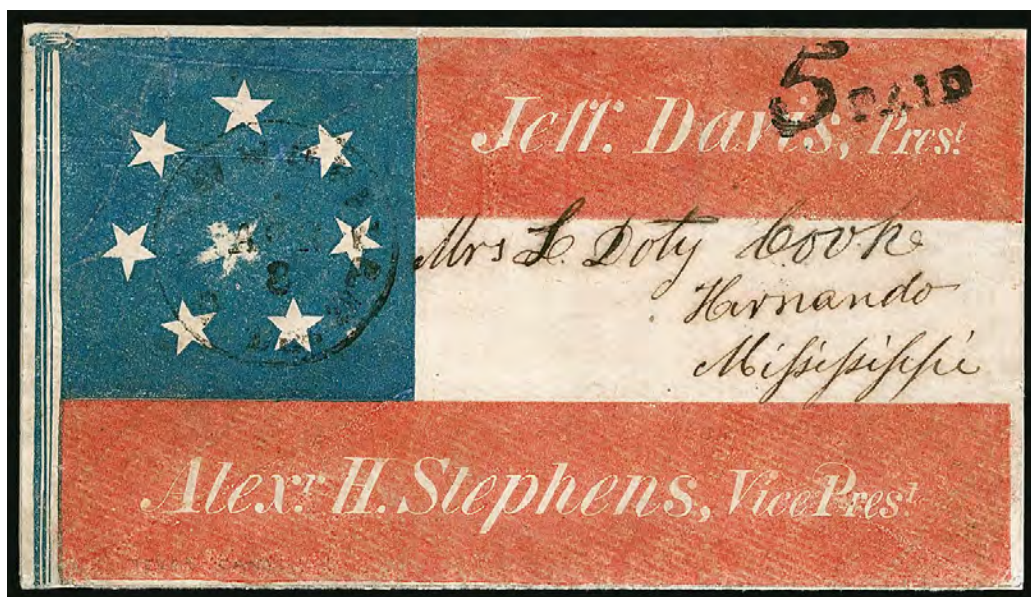 5 PAID
Jeff. Davis, Prest.
Mrs L. Doty Cooke
Hernando
Mississippi
8
Alexr. H. Stephens, Vice Prest.